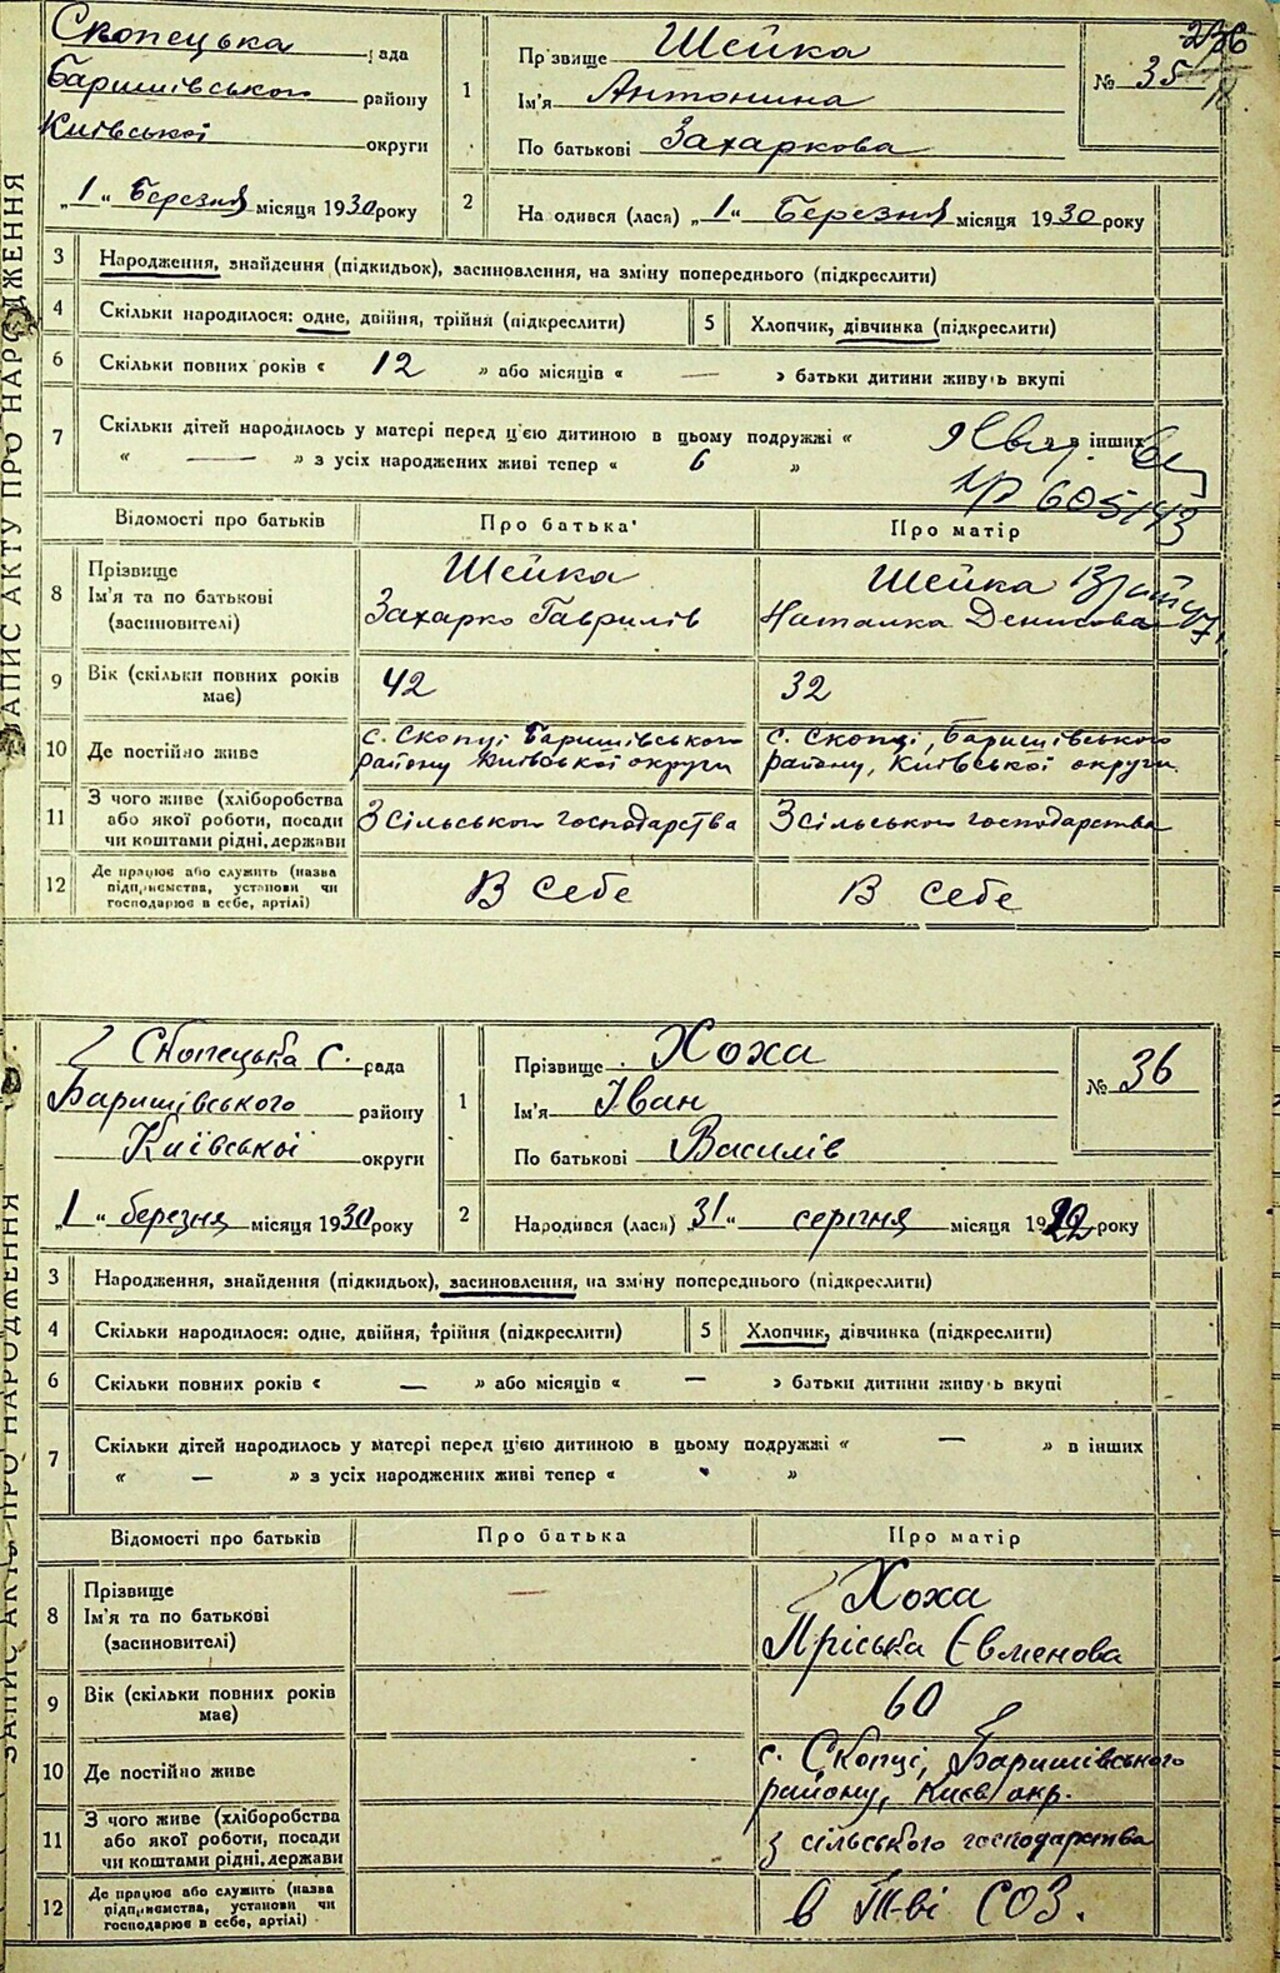 Скопецька рада
Баришівського району
Київської округи
„1“ Березня місяця 1930 року
1
Прізвище Шейка
Ім'я Антонина
По батькові Захаркова
№ 35
2
На одився (лася) „1“ Березня місяця 1930 року
ЗАПИС АКТУ ПРО НАРОДЖЕННЯ
3 Народження, знайдення (підкидьок), засиновлення, на зміну попереднього (підкреслити)
4 Скільки народилося: одне, двійня, трійня (підкреслити)
5 Хлопчик, дівчинка (підкреслити)
6 Скільки повних років « 12 » або місяців « — » батьки дитини живуть вкупі
7 Скільки дітей народилось у матері перед ц'єю дитиною в цьому подружжі « в інших
« — » з усіх народжених живі тепер « 6 »
Відомості про батьків Про батька Про матір
8 Прізвище
Ім'я та по батькові
(засиновителі)
Шейка
Захарко Гаврилів
Шейка
Наталка Денисова
9 Вік (скільки повних років
має)
42
32
10 Де постійно живе
с. Скопці Баришівського
району Київської округи
с. Скопці, Баришівського
району, Київської округи.
11 З чого живе (хліборобства
або якої роботи, посади
чи коштами рідні, держави
З сільського господарства
З сільського господарства
12 Де працює або служить (назва
підприємства, установи чи
господарює в себе, артілі)
В себе
В себе
Скопецька с. рада
Баришівського району
Київської округи
„1“ березня місяця 1930 року
1
Прізвище Хоха
Ім'я Іван
По батькові Василів
№ 36
2
Народився (лася) „31“ серпня місяця 19 року
ЗАПИС АКТУ ПРО НАРОДЖЕННЯ
3 Народження, знайдення (підкидьок), засиновлення, на зміну попереднього (підкреслити)
4 Скільки народилося: одне, двійня, трійня (підкреслити)
5 Хлопчик, дівчинка (підкреслити)
6 Скільки повних років « — » або місяців « — » батьки дитини живуть вкупі
7 Скільки дітей народилось у матері перед ц'єю дитиною в цьому подружжі « — » в інших
« — » з усіх народжених живі тепер « »
Відомості про батьків Про батька Про матір
8 Прізвище
Ім'я та по батькові
(засиновителі)
—
Хоха
Пріська Євменова
9 Вік (скільки повних років
має)
60
10 Де постійно живе
с. Скопці, Баришівського
району, Києв окр.
11 З чого живе (хліборобства
або якої роботи, посади
чи коштами рідні, держави
з сільського господарства
12 Де працює або служить (назва
підприємства, установи чи
господарює в себе, артілі)
в т-ві СОЗ.